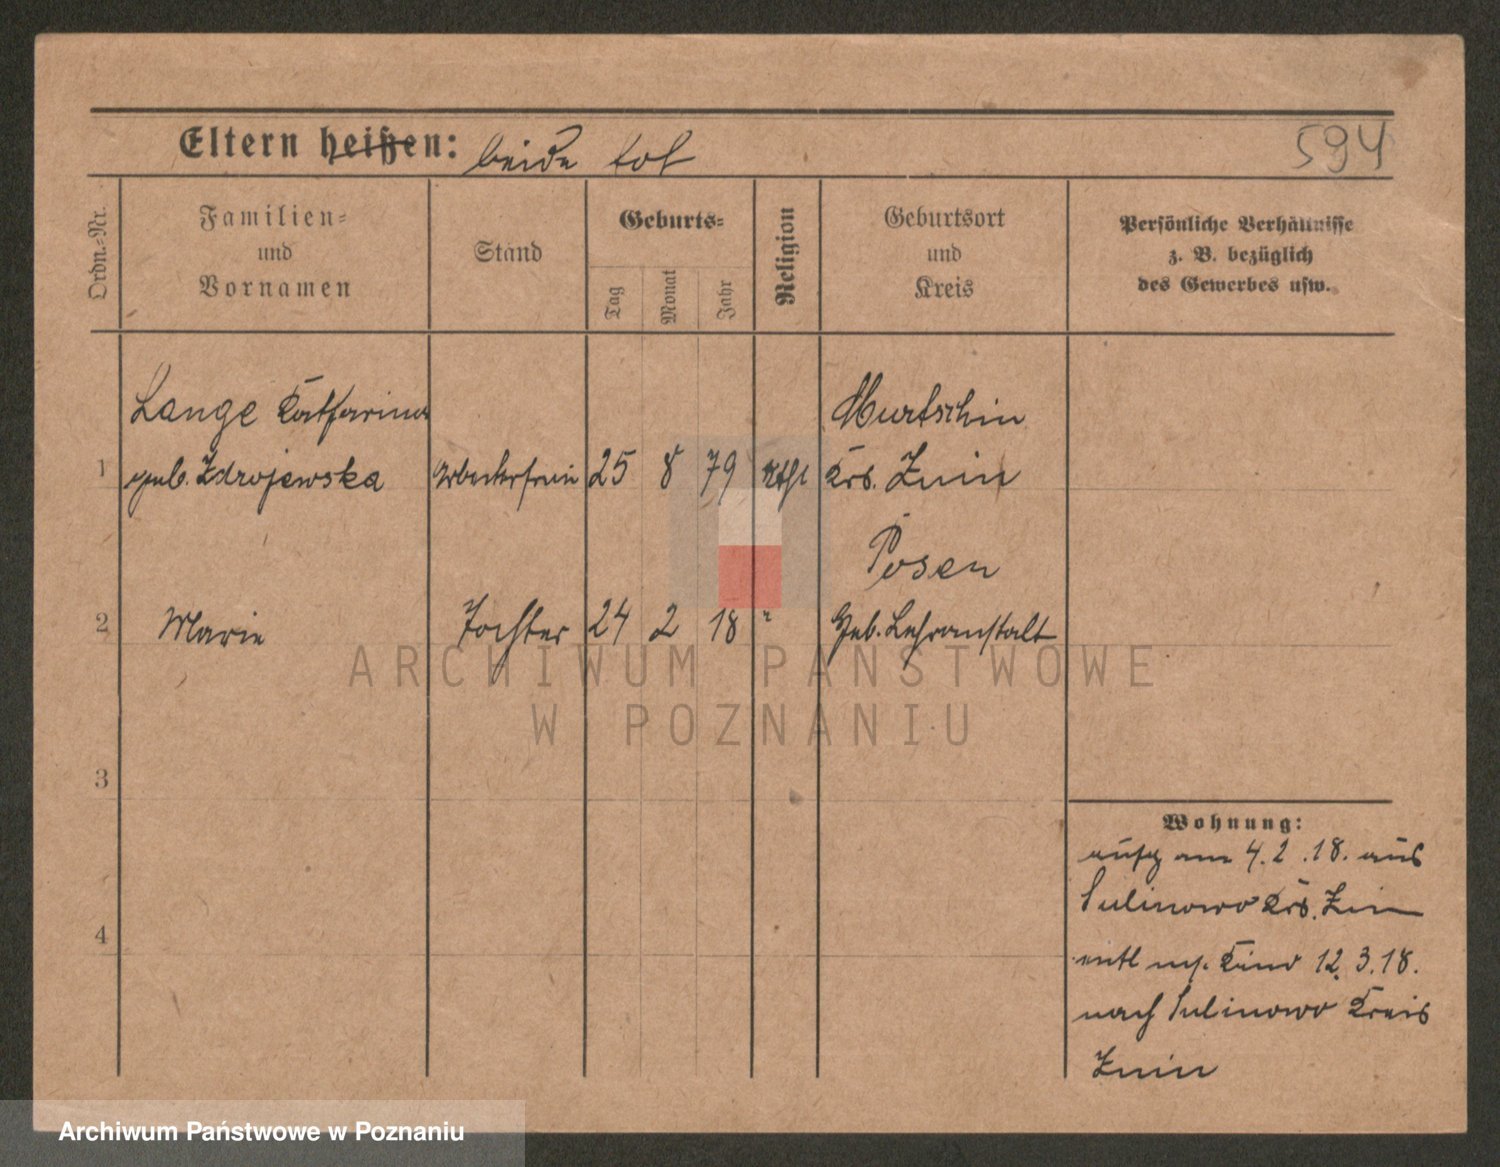 594
Eltern heißen: beide tot
Ordn.-Nr.
Familien-
und
Vornamen
Stand
Geburts-
Tag
Monat
Jahr
Religion
Geburtsort
und
Kreis
Persönliche Verhältnisse
z. B. bezüglich
des Gewerbes usw.
Lange Katharina
Murtschin
1 geb. Zdrojewska Arbeiterfrau 25 8 79 kthl Krs. Znin
Posen
2 Marie Tochter 24 2 18 " Heb. Lehranstalt
3
4
Wohnung:
aufg am 4.2.18. aus
Sulinowo Krs. Znin
entl m. Kind 12.3.18.
nach Sulinowo Kreis
Znin
ARCHIWUM PAŃSTWOWE
W POZNANIU
Archiwum Państwowe w Poznaniu